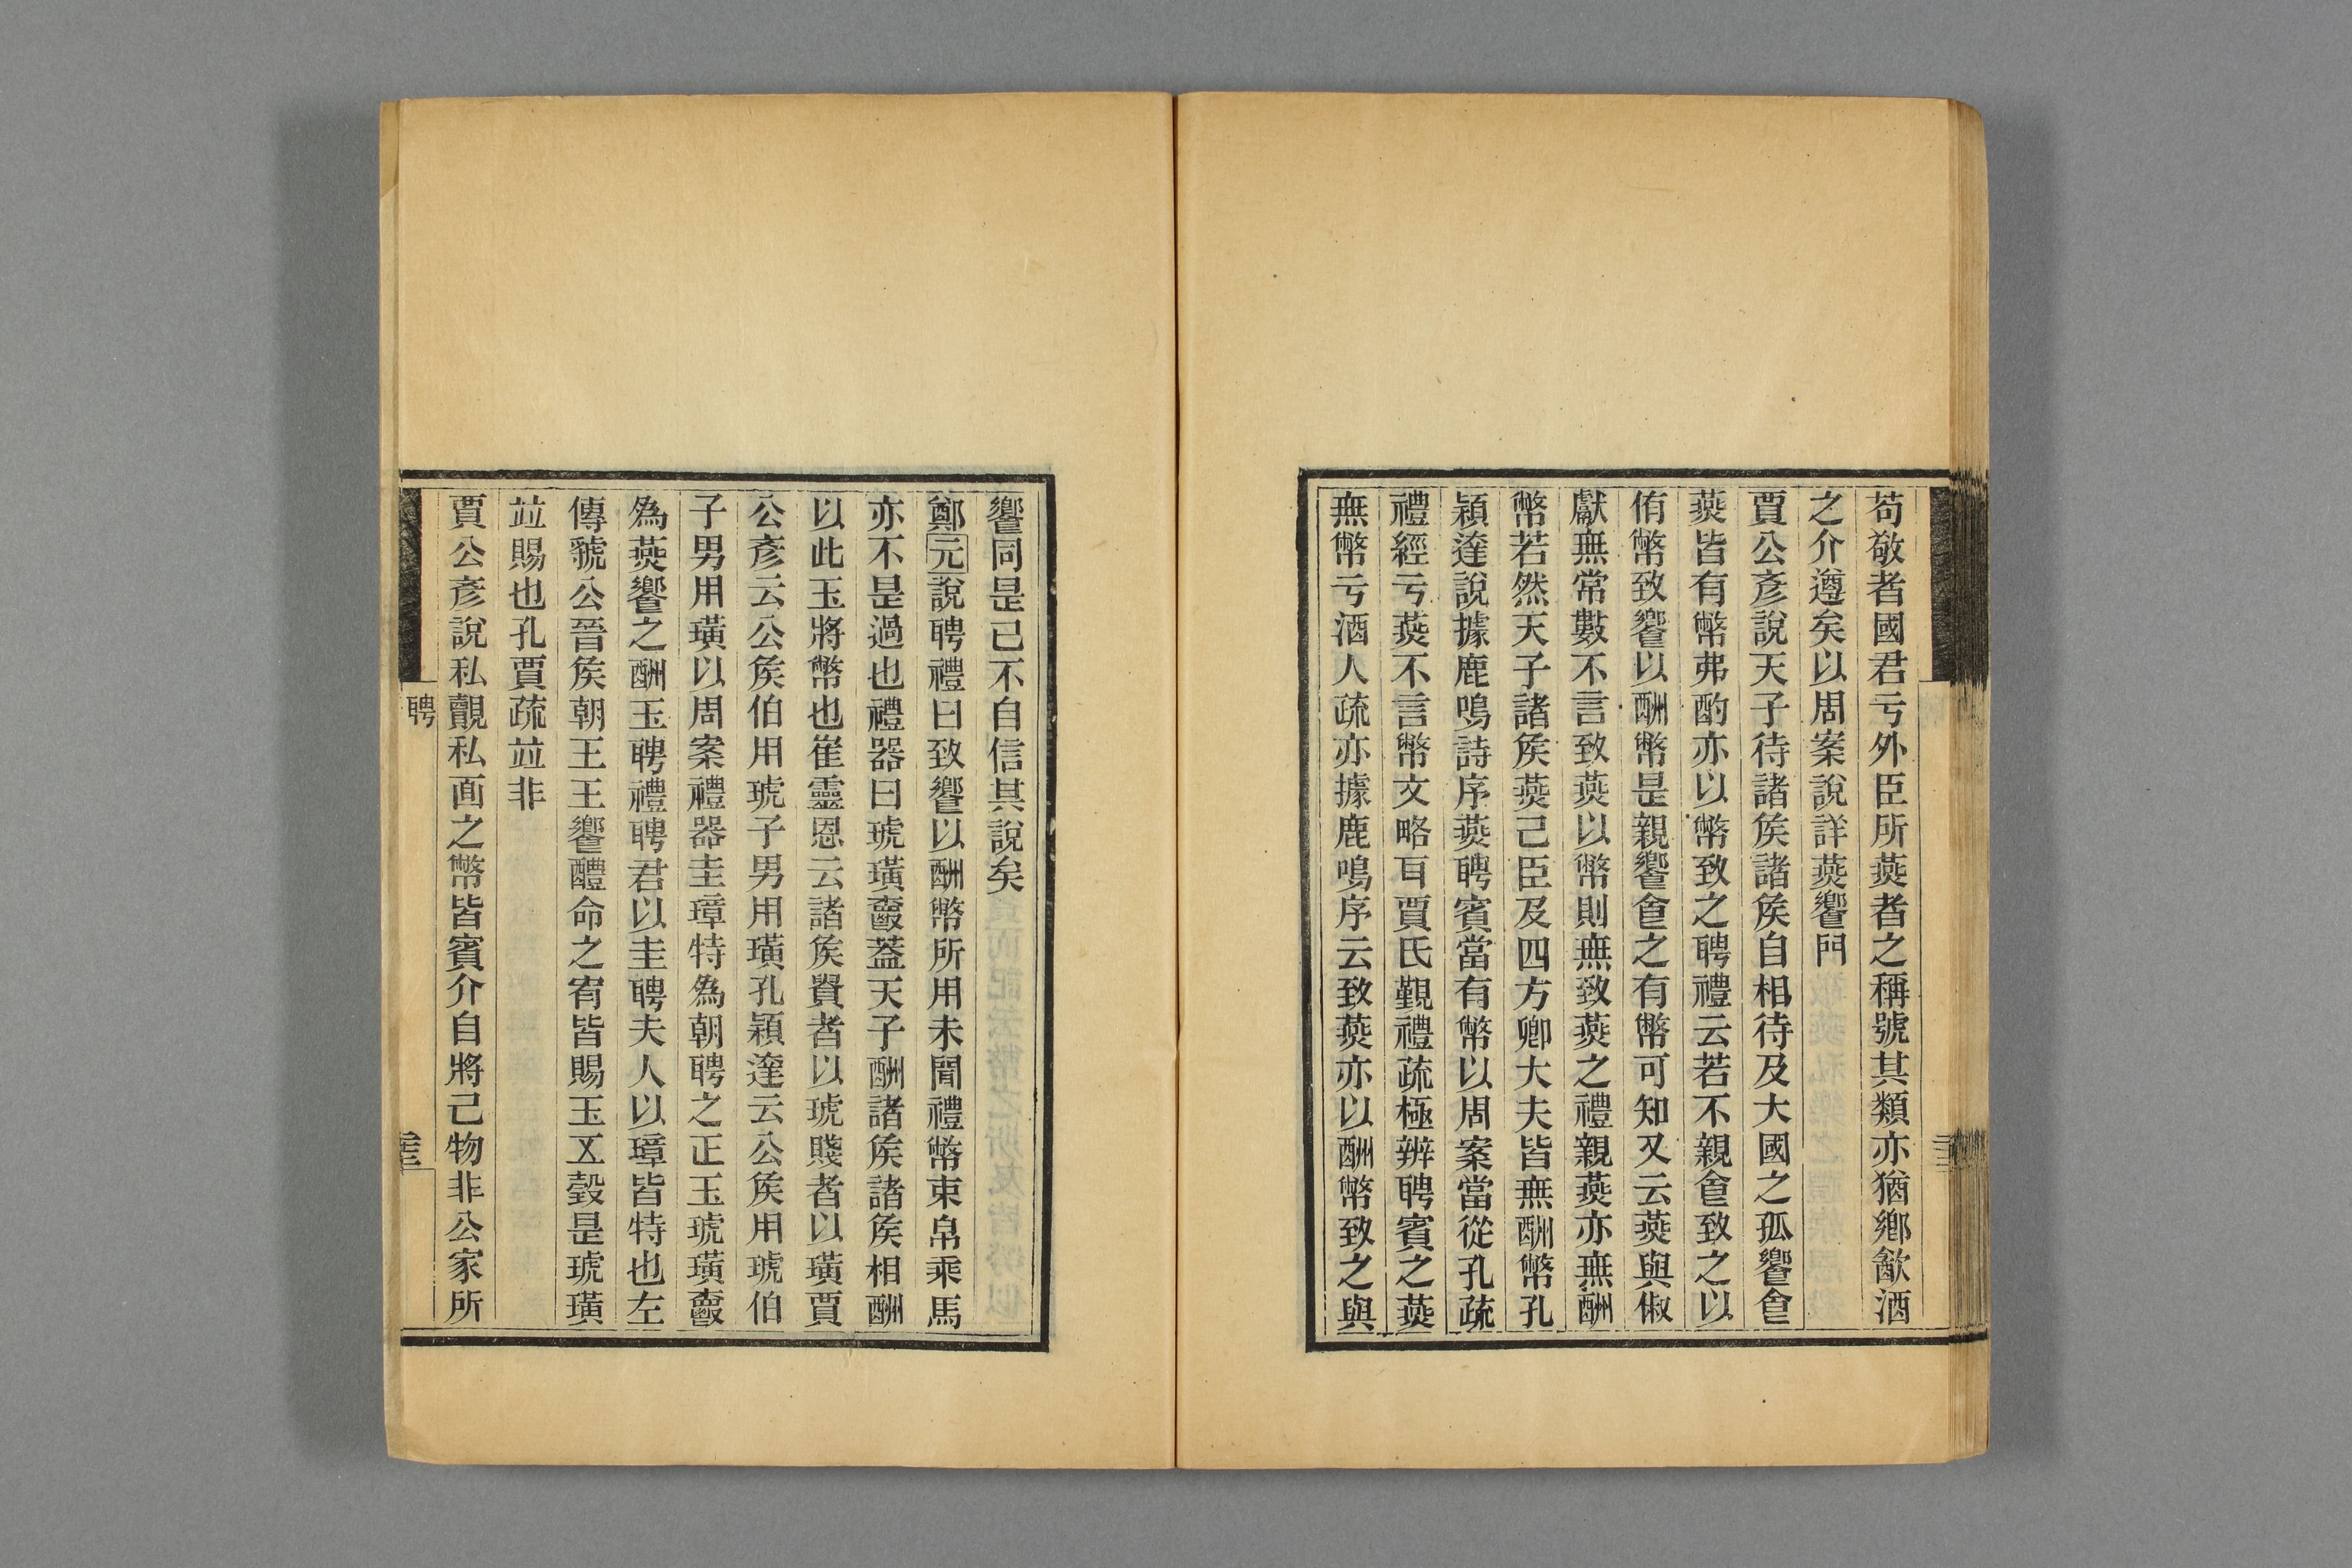 苟敬者國君亏外臣所燕者之稱號其類亦猶鄉歙酒
之介遵矣以周案說詳燕饗門
賈公彥說天子待諸矦諸矦自相待及大國之孤饗㑹
燕皆有幣弗酌亦以幣致之聘禮云若不親㑹致之以
侑幣致饗以酬幣是親饗㑹之有幣可知又云燕與俶
獻無常數不言致燕以幣則無致燕之禮親燕亦無酬
幣若然天子諸矦燕己臣及四方卿大夫皆無酬幣孔
穎達說據鹿鳴詩序燕聘賓當有幣以周案當從孔疏
禮經亏燕不言幣文略耳賈氏覲禮疏極辨聘賓之燕
無幣亏酒人疏亦據鹿鳴序云致燕亦以酬幣致之與
饗同是已不自信其說矣
鄭元說聘禮曰致饗以酬幣所用未聞禮幣束帛乘馬
亦不是過也禮器曰琥璜爵蓋天子酬諸矦諸矦相酬
以此玉將幣也崔靈恩云諸矦貴者以琥賤者以璜賈
公彥云公矦伯用琥子男用璜孔穎達云公矦用琥伯
子男用璜以周案禮器圭璋特為朝聘之正玉琥璜爵
為燕饗之酬玉聘禮聘君以圭聘夫人以璋皆特也左
傳虢公晉矦朝王王饗醴命之宥皆賜玉五瑴是琥璜
竝賜也孔賈疏竝非
賈公彥說私覿私面之幣皆賓介自將己物非公家所
聘